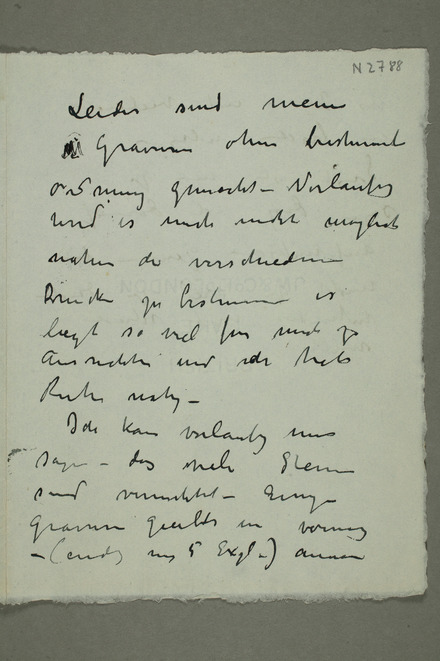 N 2788
Leider sind meine
Gravuren ohne bestimmte
Ordnung gemacht – Vorläufig
wird es mich nicht möglich
nahere die verschiedene
Drucke zu bestimmen es
liegt so viel für mich zu
Ausrichten und ich habe
Ruhe notig –
Ich kann vorläufig nur
sagen – das viele Steine
sind vernichtet – Einige
Gravuren giebts in wenig
– (cirka nur 5 Expl.)